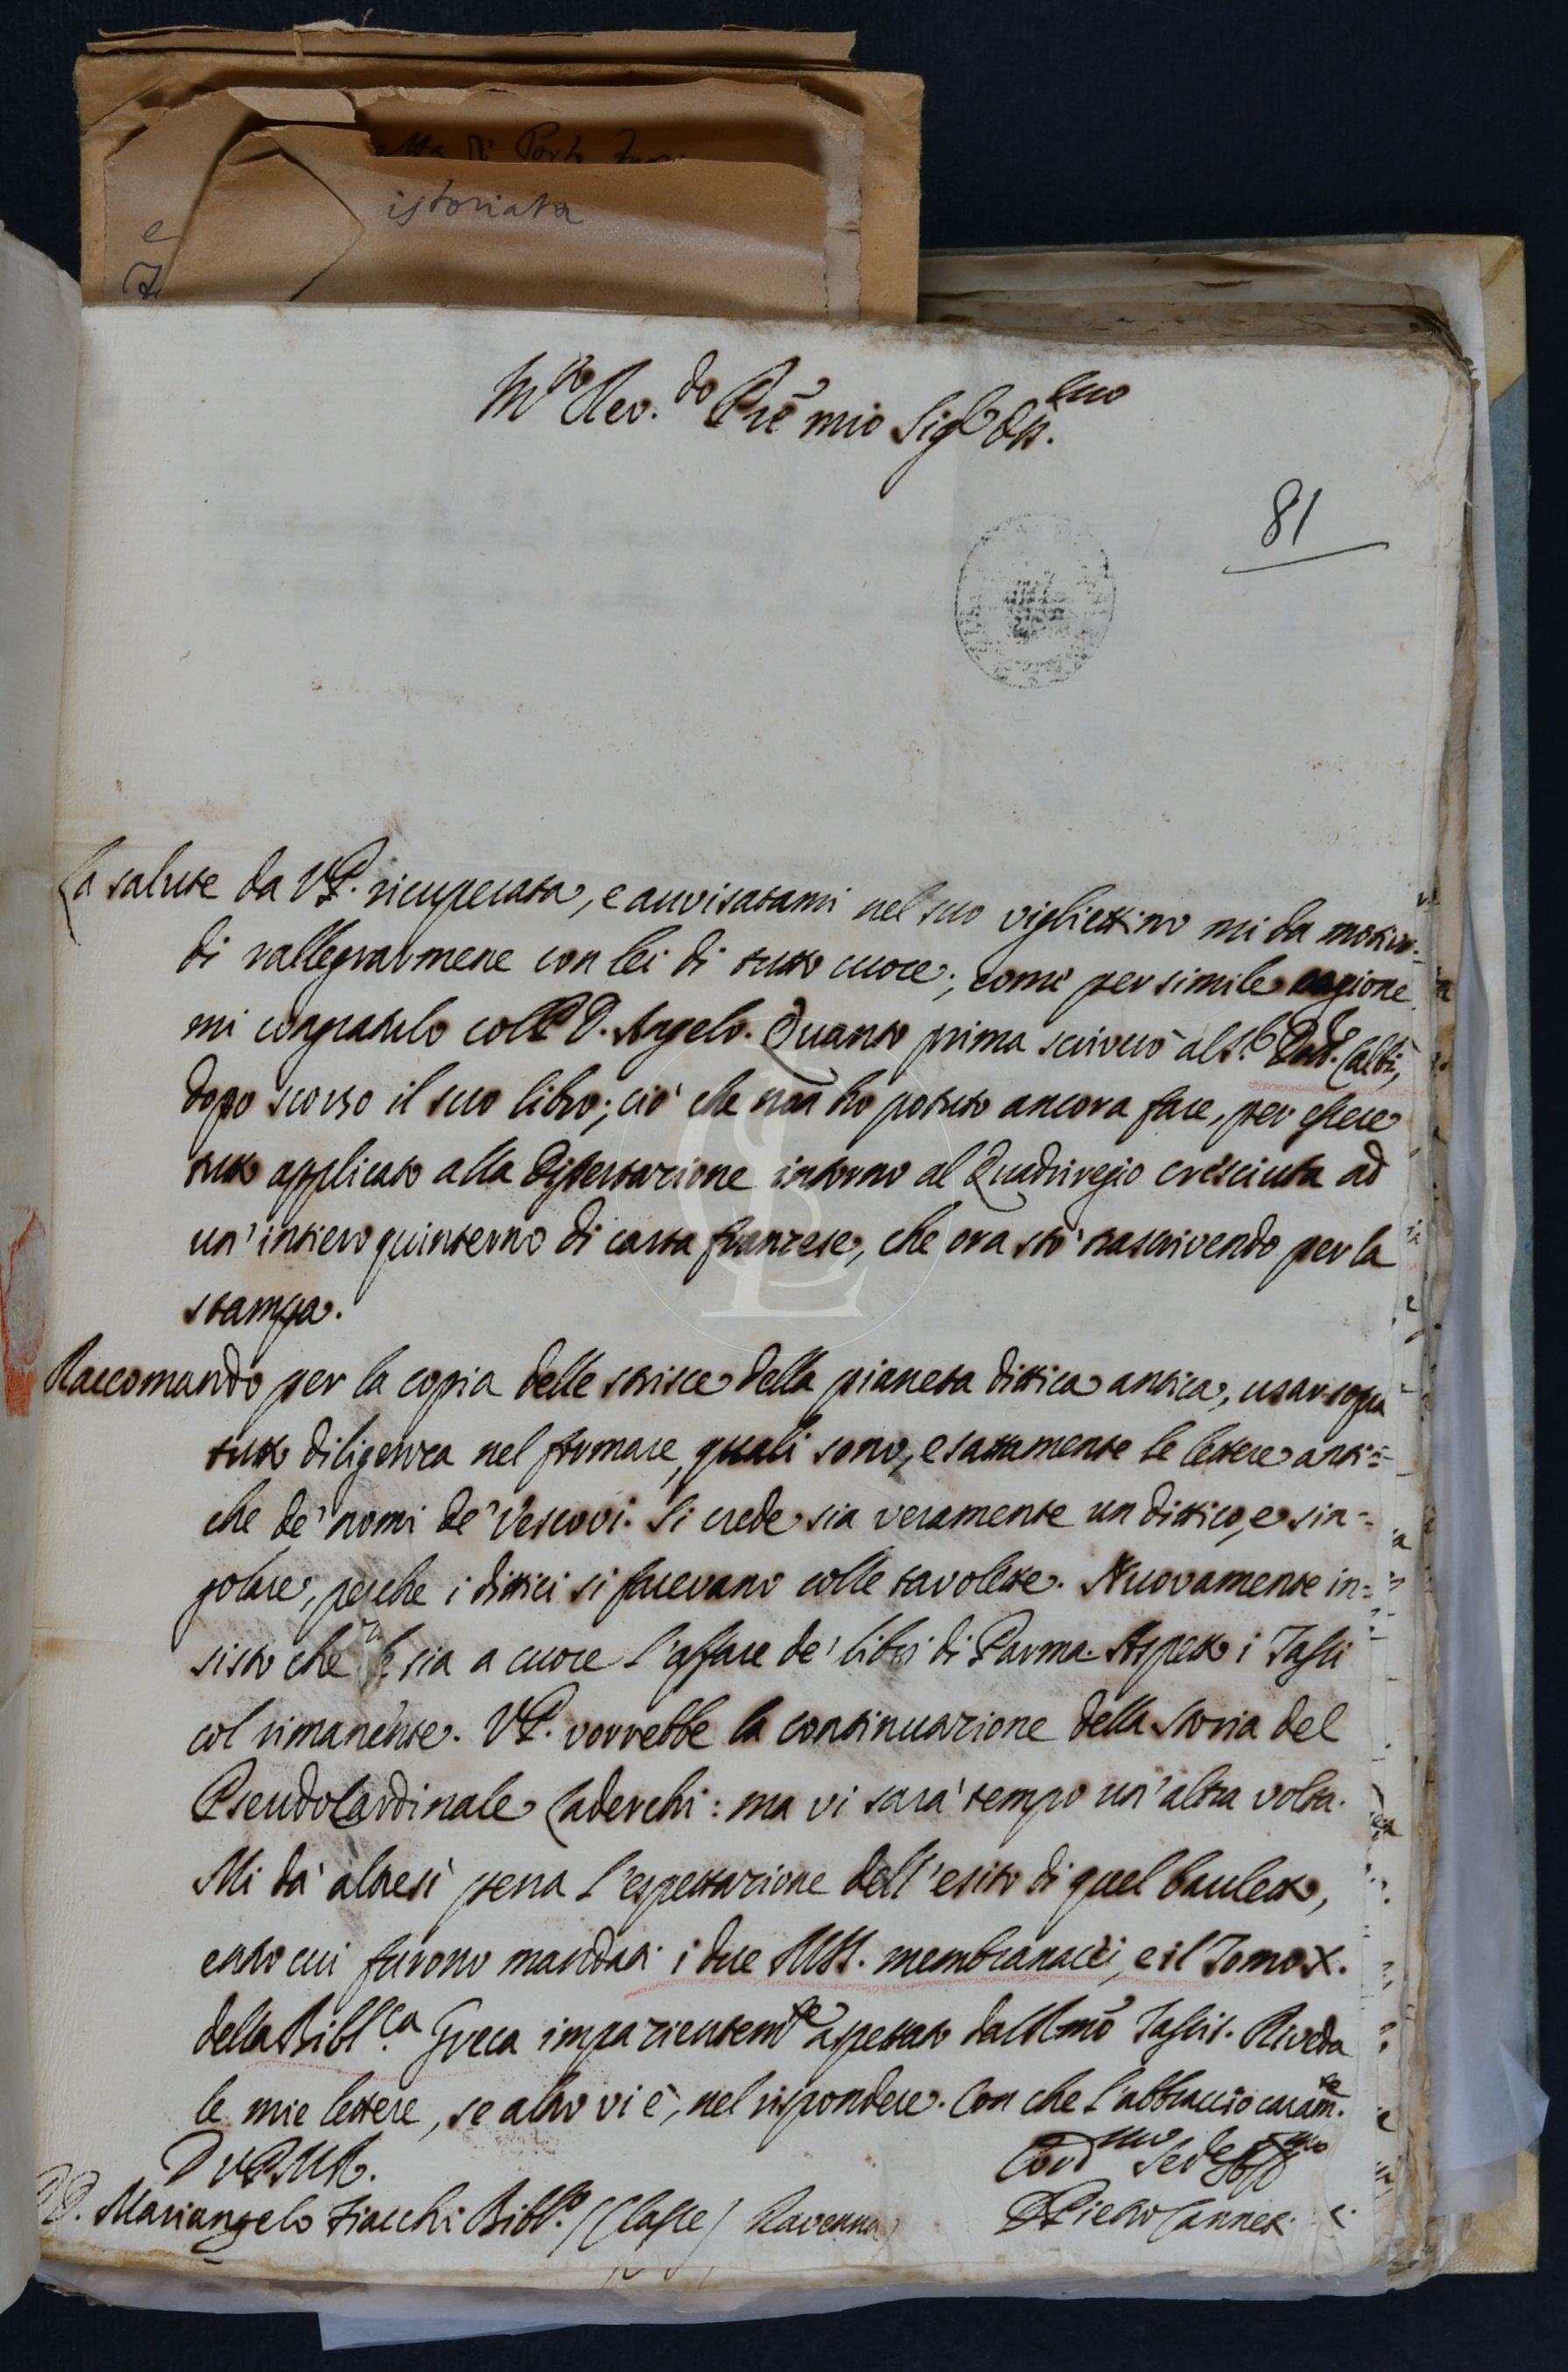 istoriata
Mto Rev.do Pre mio Sigr Oss.mo
81
La salute da V.P. ricuperata, e avvisatami nel suo vigliettino mi da motivo
di rallegrarmene con lei di tutto cuore; come per simile cagione
mi congratulo coll P. D. Angelo. Quanto prima scriverò al S.r Dott.e Calbi,
dopo scorso il suo libro; ciò che non ho potuto ancora fare, per essere
tutto applicato alla Dissertazione intorno al Quadriregio cresciuta ad
un' intiero quinterno di carta franzese, che ora stò trascrivendo per la
stampa.
Raccomando per la copia delle strisce della pianeta dittica antica, usar sopra
tutto diligenza nel formare, quali sono, esattamente le lettere anti=
che de' nomi de' Vescovi. Si crede sia veramente un dittico, e sin=
golare, perche i dittici si facevano colle tavolette. Nuovamente in=
sisto che le sia a cuore l'affare de' libri di Parma. Aspetto i Tassi
col rimanente. V.P. vorrebbe la continuazione della Storia del
PseudoCardinale Caderchi: ma vi sarà tempo un' altra volta.
Mi dà altresì pena l'espettazione dell' esito di quel bauletto,
entro cui furono mandati i due MSS. membranacei, e il Tomo X.
della Bibl.ca Greca impazientemte aspettato dall Rmo Tassis. Riveda
le mie lettere, se altro vi è, nel rispondere. Con che l'abbraccio caram.te
D V.P.M.R.
P. D. Mariangelo Fiacchi Bibl.o (Classe) Ravenna
Cord.mo Ser.e Obb.mo
D Pietro Canneti